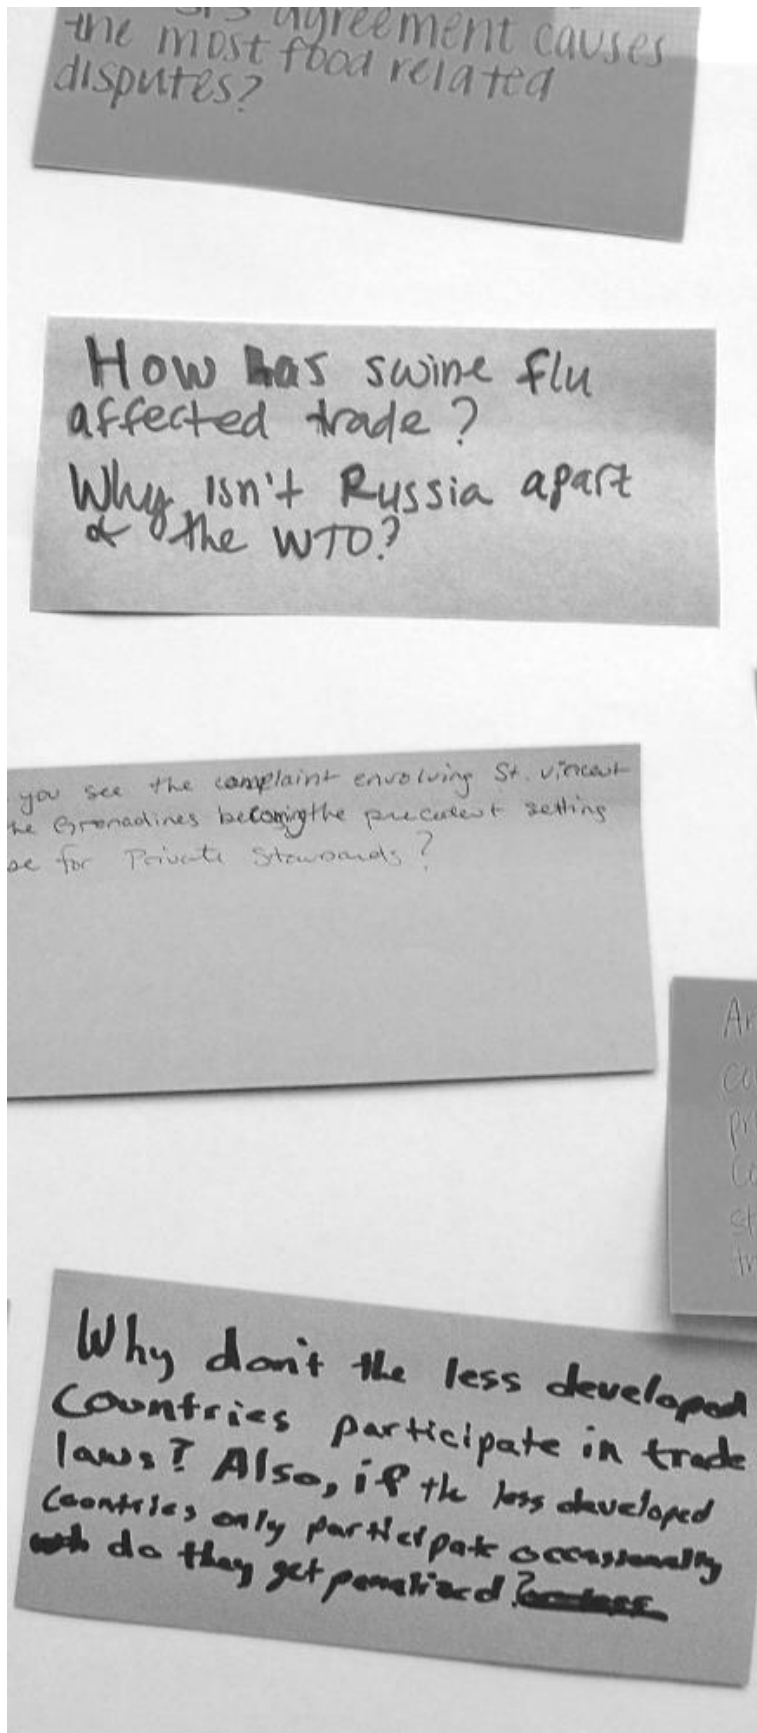 agreement causes
the most food related
disputes?
How has swine flu
affected trade?
Why isn't Russia apart
of the WTO?
you see the complaint envolving St. Vincent
Grenadines becoming the precedent setting
for Private Standards?
Why don't the less developed
Countries participate in trade
laws? Also, if the less developed
Countries only participate occassionally
do they get penalized?